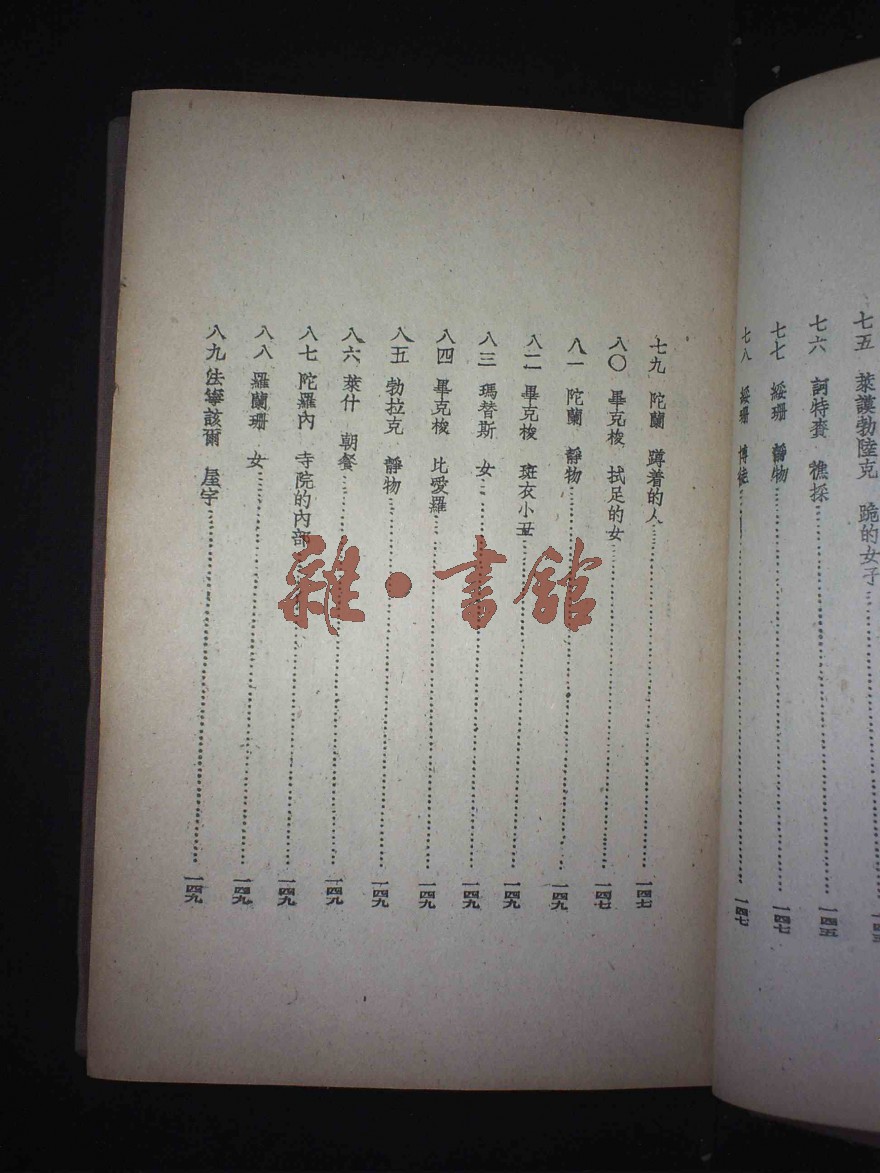 七五 萊謨勃陸克 跪的女子……一四三
七六 訶特賚 樵採……一四五
七七 綏珊 靜物……一四七
七八 綏珊 博徒……一四七
七九 陀蘭 蹲着的人……一四七
八〇 畢克梭 拭足的女……一四七
八一 陀蘭 靜物……一四九
八二 畢克梭 斑衣小丑……一四九
八三 瑪替斯 女……一四九
八四 畢克梭 比愛羅……一四九
八五 勃拉克 靜物……一四九
八六 萊什 朝餐……一四九
八七 陀羅內 寺院的內部……一四九
八八 羅蘭珊 女……一四九
八九 法寧該爾 屋宇……一四九
雜·書館